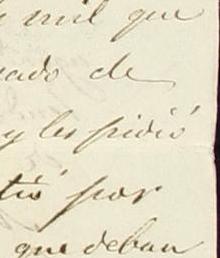 mil que
ado de
y les pidió
tió por
que deban